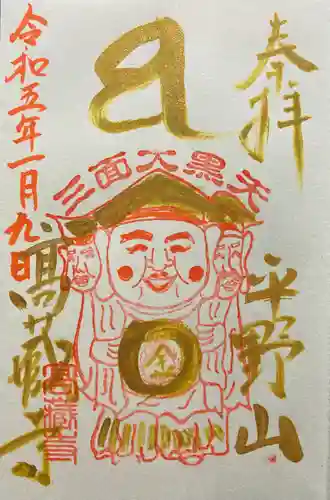 奉拝
平野山
三面大黒天
高蔵寺
高蔵寺
令和五年一月九日